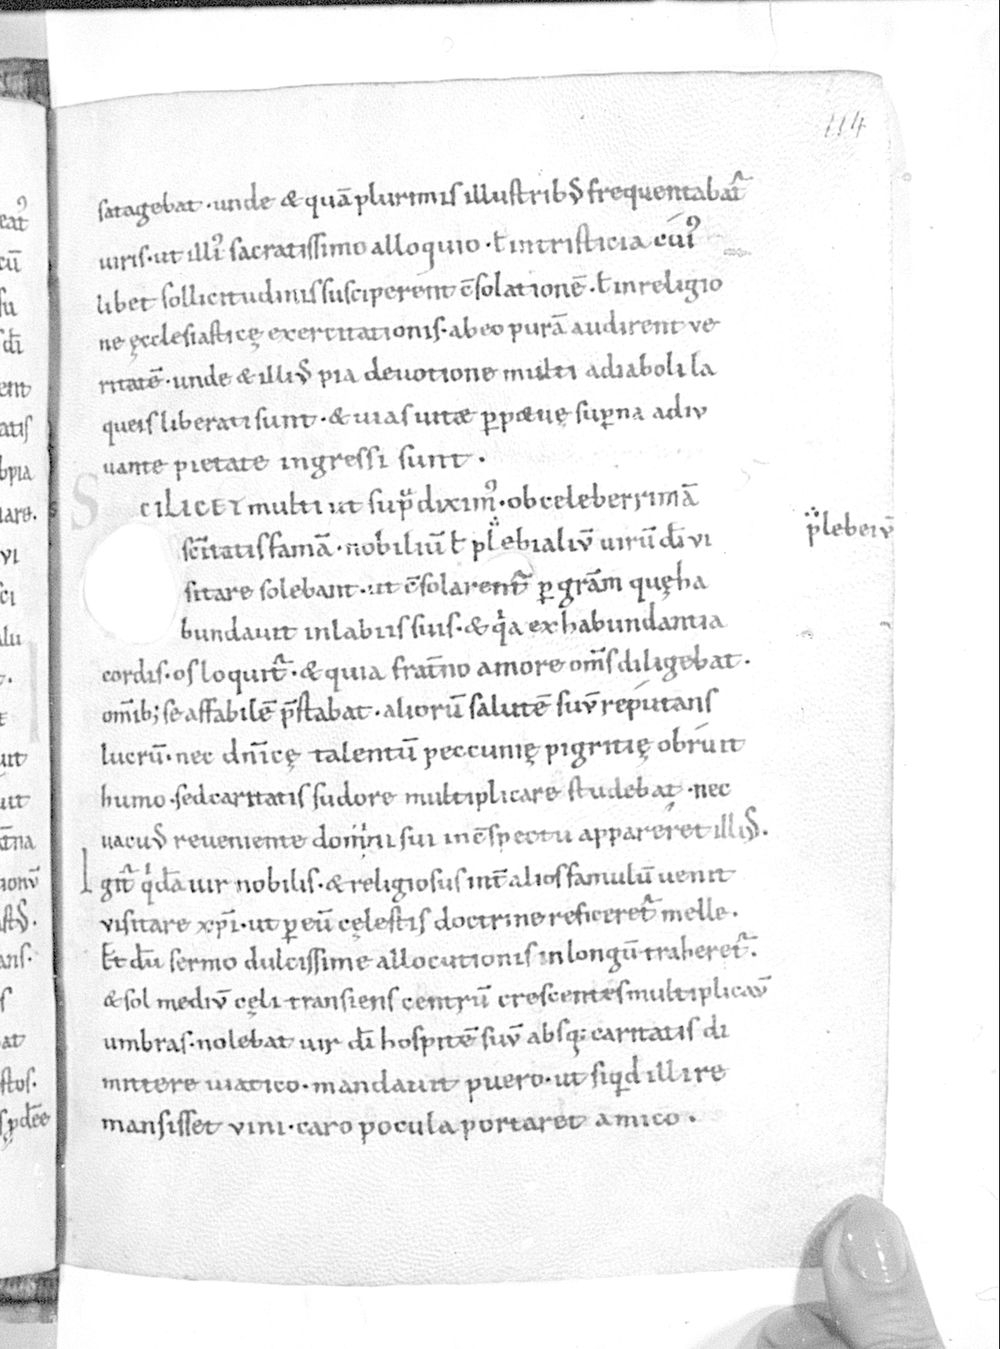 114
satagebat · unde & quā plurimis illustribꝰ frequentabat᷑
uiris · ut illi᷑ sacratissimo alloquio · ł in tristicia cuiꝰ
libet sollicitudinis susciperent c̄solationē · ł in religio
ne ęcclesiasticę exercitationis · ab eo purā audirent ve
ritatē · unde & illiꝰ pia deuotione multi a diaboli la
queis liberati sunt · & uias uitæ ꝑpetuę suꝑna adiu
uante pietate ingressi sunt .
SCILICET multi ut sup̈ diximꝰ · ob celeberrimā
sc̄itatis famā · nobiliū ł pl̈ebialiū uirū dī vi
p̈lebeiū
sitare solebant · ut c̄solarent᷑ ꝑ grām quę ha
bundauit in labiis suis · & qͥa ex habundantia
cordis · os loquit᷑ · & quia frat̄no amore om̄s diligebat .
om̄ib; se affabilē p̄stabat · aliorū salutē suū reputans
lucrū · nec dn̄icę talentū peccunię pigritię obruit
humo · sed caritatis sudore multiplicare studebat · nec
uacuꝰ reueniente domini sui in c̄spectu appareret illiꝰ .
Igit᷑ qͥdā uir nobilis · & religiosus int̄ alios famulū uenit
visitare xp̄i · ut ꝑ eū cęlestis doctrine reficeret᷑ melle .
Et dū sermo dulcissime allocutionis in longū traheret᷑ .
& sol mediū cęli transiens centrū crescentes multiplicaū
umbras · nolebat uir dī hospitē suū absq; caritatis di
mittere uiatico · mandauit puero · ut siqͥd illi re
mansisset vini · caro pocula portaret amico .